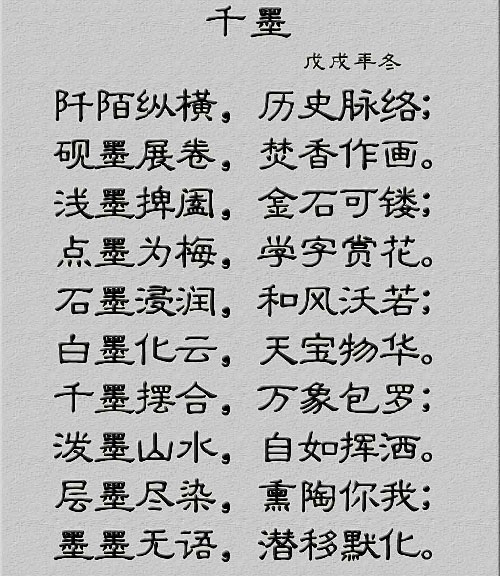 千墨
戊戌年冬
阡陌纵横，历史脉络；
砚墨展卷，焚香作画。
浅墨捭阖，金石可镂；
点墨为梅，学字赏花。
石墨浸润，和风沃若；
白墨化云，天宝物华。
千墨摆合，万象包罗；
泼墨山水，自如挥洒。
层墨尽染，熏陶你我；
墨墨无语，潜移默化。